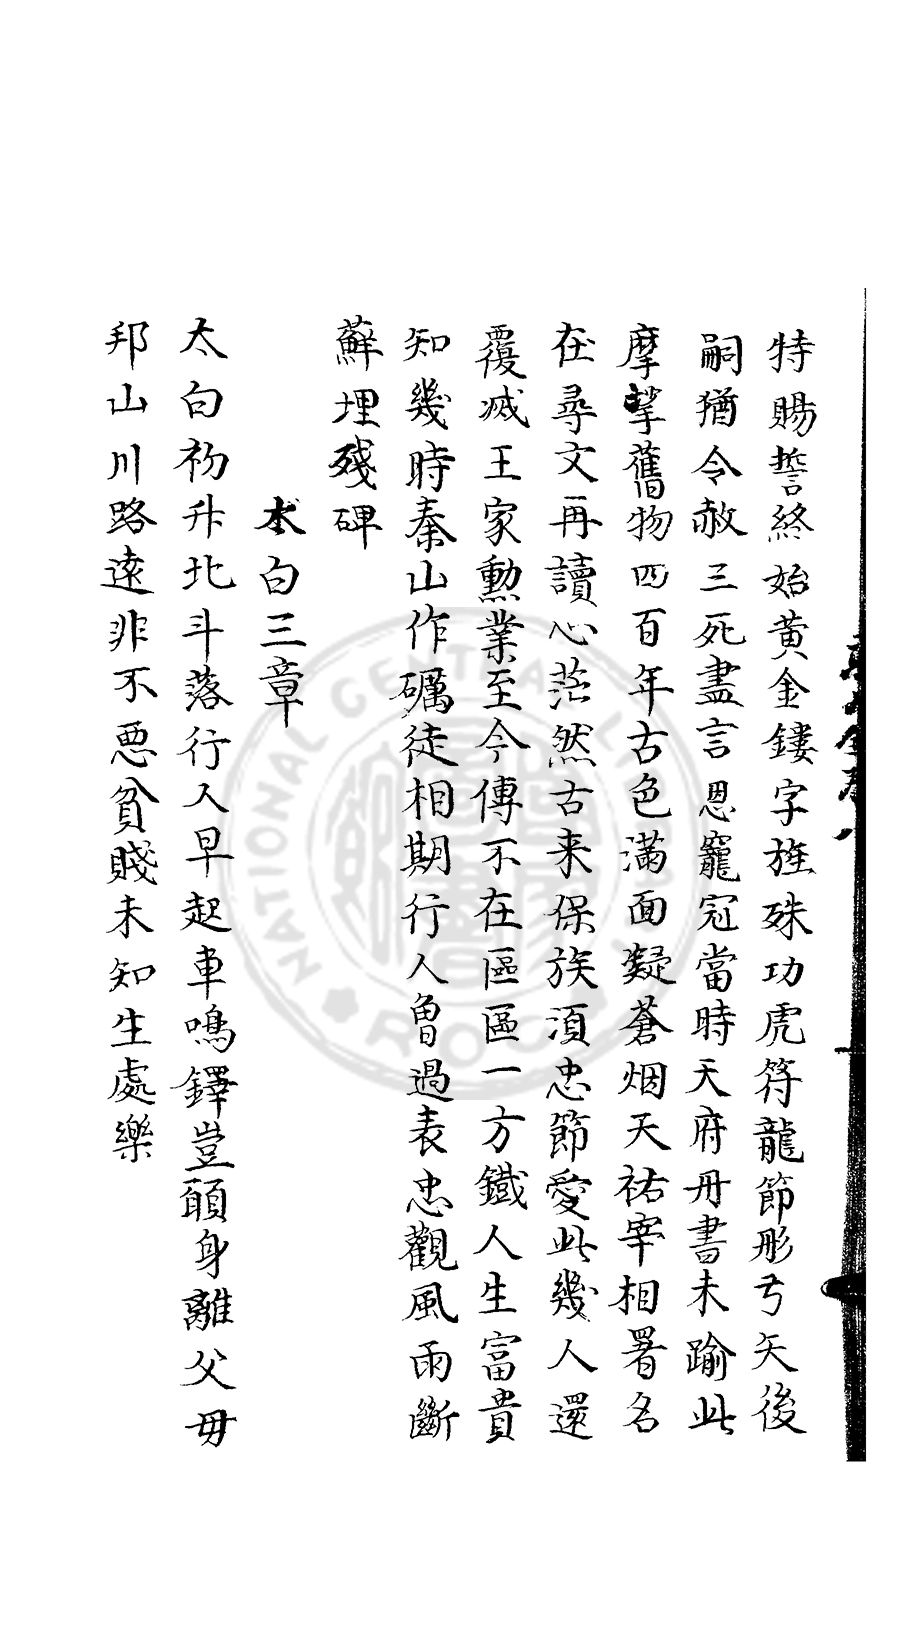 特賜誓終始黄金鏤字旌殊功虎符龍節彤弓矢後
嗣猶令赦三死盡言恩寵冠當時天府丹書未踰此
摩挲舊物四百年古色滿面凝蒼烟天祐宰相署名
在尋文再讀心茫然古来保族須忠節愛此幾人還
覆滅王家勲業至今傳不在區區一方鐵人生富貴
知幾時泰山作礪徒相期行人曾過表忠觀風雨斷
蘚埋殘碑
太白三章
太白初升北斗落行人早起車鳴鐸豈願身離父母
邦山川路遠非不悪貧賤未知生處樂
NATIONAL CENTRAL LIBRARY
R.O.C.